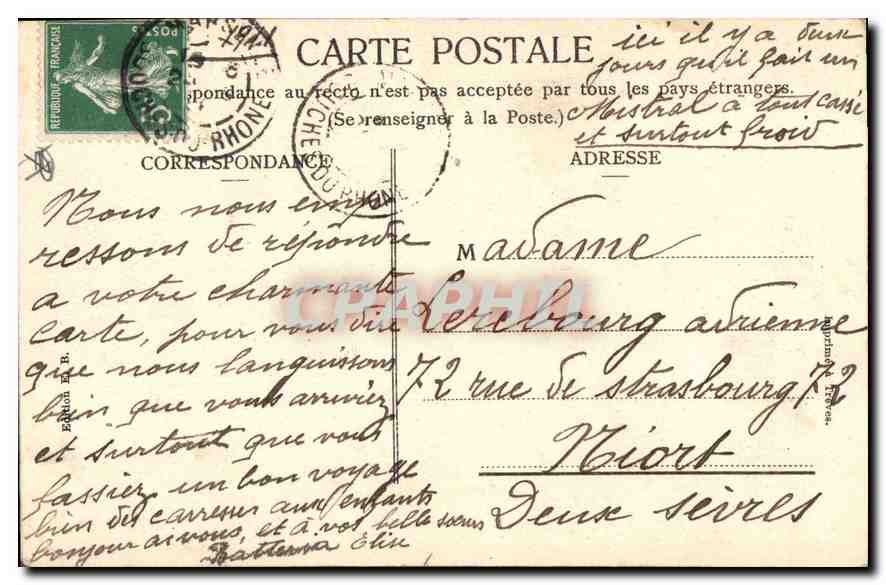 POSTES
REPUBLIQUE FRANÇAISE
CARTE POSTALE
respondance au recto n'est pas acceptée par tous les pays étrangers.
(Se renseigner à la Poste.)
BOUCHES-DU-RHONE
BOUCHES-DU-RHONE
ici il y a deux
jours qu'il fait un
Mistral a tout cassé
et surtout froid
CORRESPONDANCE
Nous nous em
ressons de répondre
a votre charmante
carte, pour vous dire
que nous languissons
bien que vous arriviez
et surtout que vous
fassiez un bon voyage
bien des caresses aux enfants
bonjour a vous, et a vos belle sœurs
Elise
ADRESSE
Madame
Lerebourg adrienne
72 rue de strasbourg 72
Niort
Deux sèvres
Edition E. B.
Imprimerie Trèves.
CPAPHIL